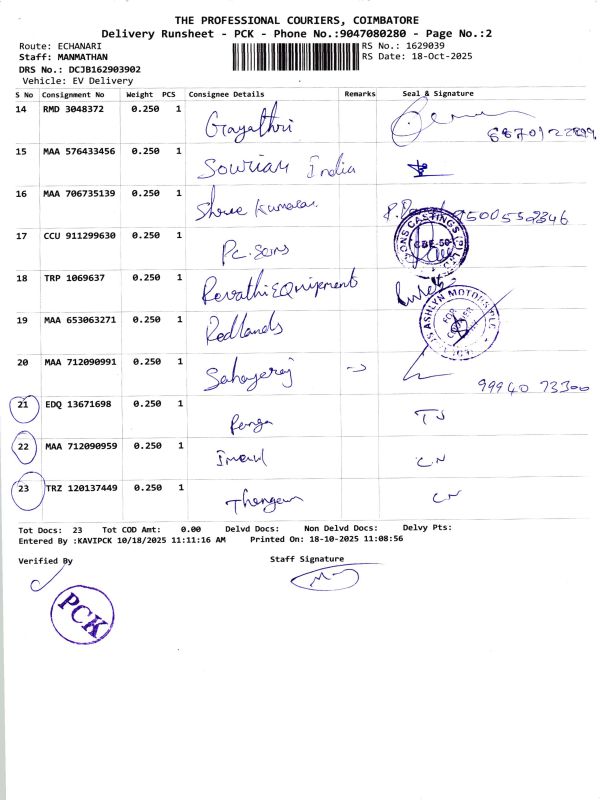 THE PROFESSIONAL COURIERS, COIMBATORE
Delivery Runsheet - PCK - Phone No.:9047080280 - Page No.:2
Route: ECHANARI RS No.: 1629039
Staff: MANMATHAN RS Date: 18-Oct-2025
DRS No.: DCJB162903902
Vehicle: EV Delivery
S No Consignment No Weight PCS Consignee Details Remarks Seal & Signature
14 RMD 3048372 0.250 1 Gayathri
15 MAA 576433456 0.250 1 Sourian India
16 MAA 706735139 0.250 1 Shree Kumaran 9500552346
17 CCU 911299630 0.250 1 Pc. Sons CASTINGS (P) CBE-50
18 TRP 1069637 0.250 1 Revathi EQuipment
19 MAA 653063271 0.250 1 Redlands ASHLYN MOTORS PLC FOR COURIER
20 MAA 712090991 0.250 1 Sahayaraj 99940 73300
21 EDQ 13671698 0.250 1 Renga TJ
22 MAA 712090959 0.250 1 CN
23 TRZ 120137449 0.250 1 CN
Tot Docs: 23 Tot COD Amt: 0.00 Delvd Docs: Non Delvd Docs: Delvy Pts:
Entered By :KAVIPCK 10/18/2025 11:11:16 AM Printed On: 18-10-2025 11:08:56
Verified By Staff Signature
PCK